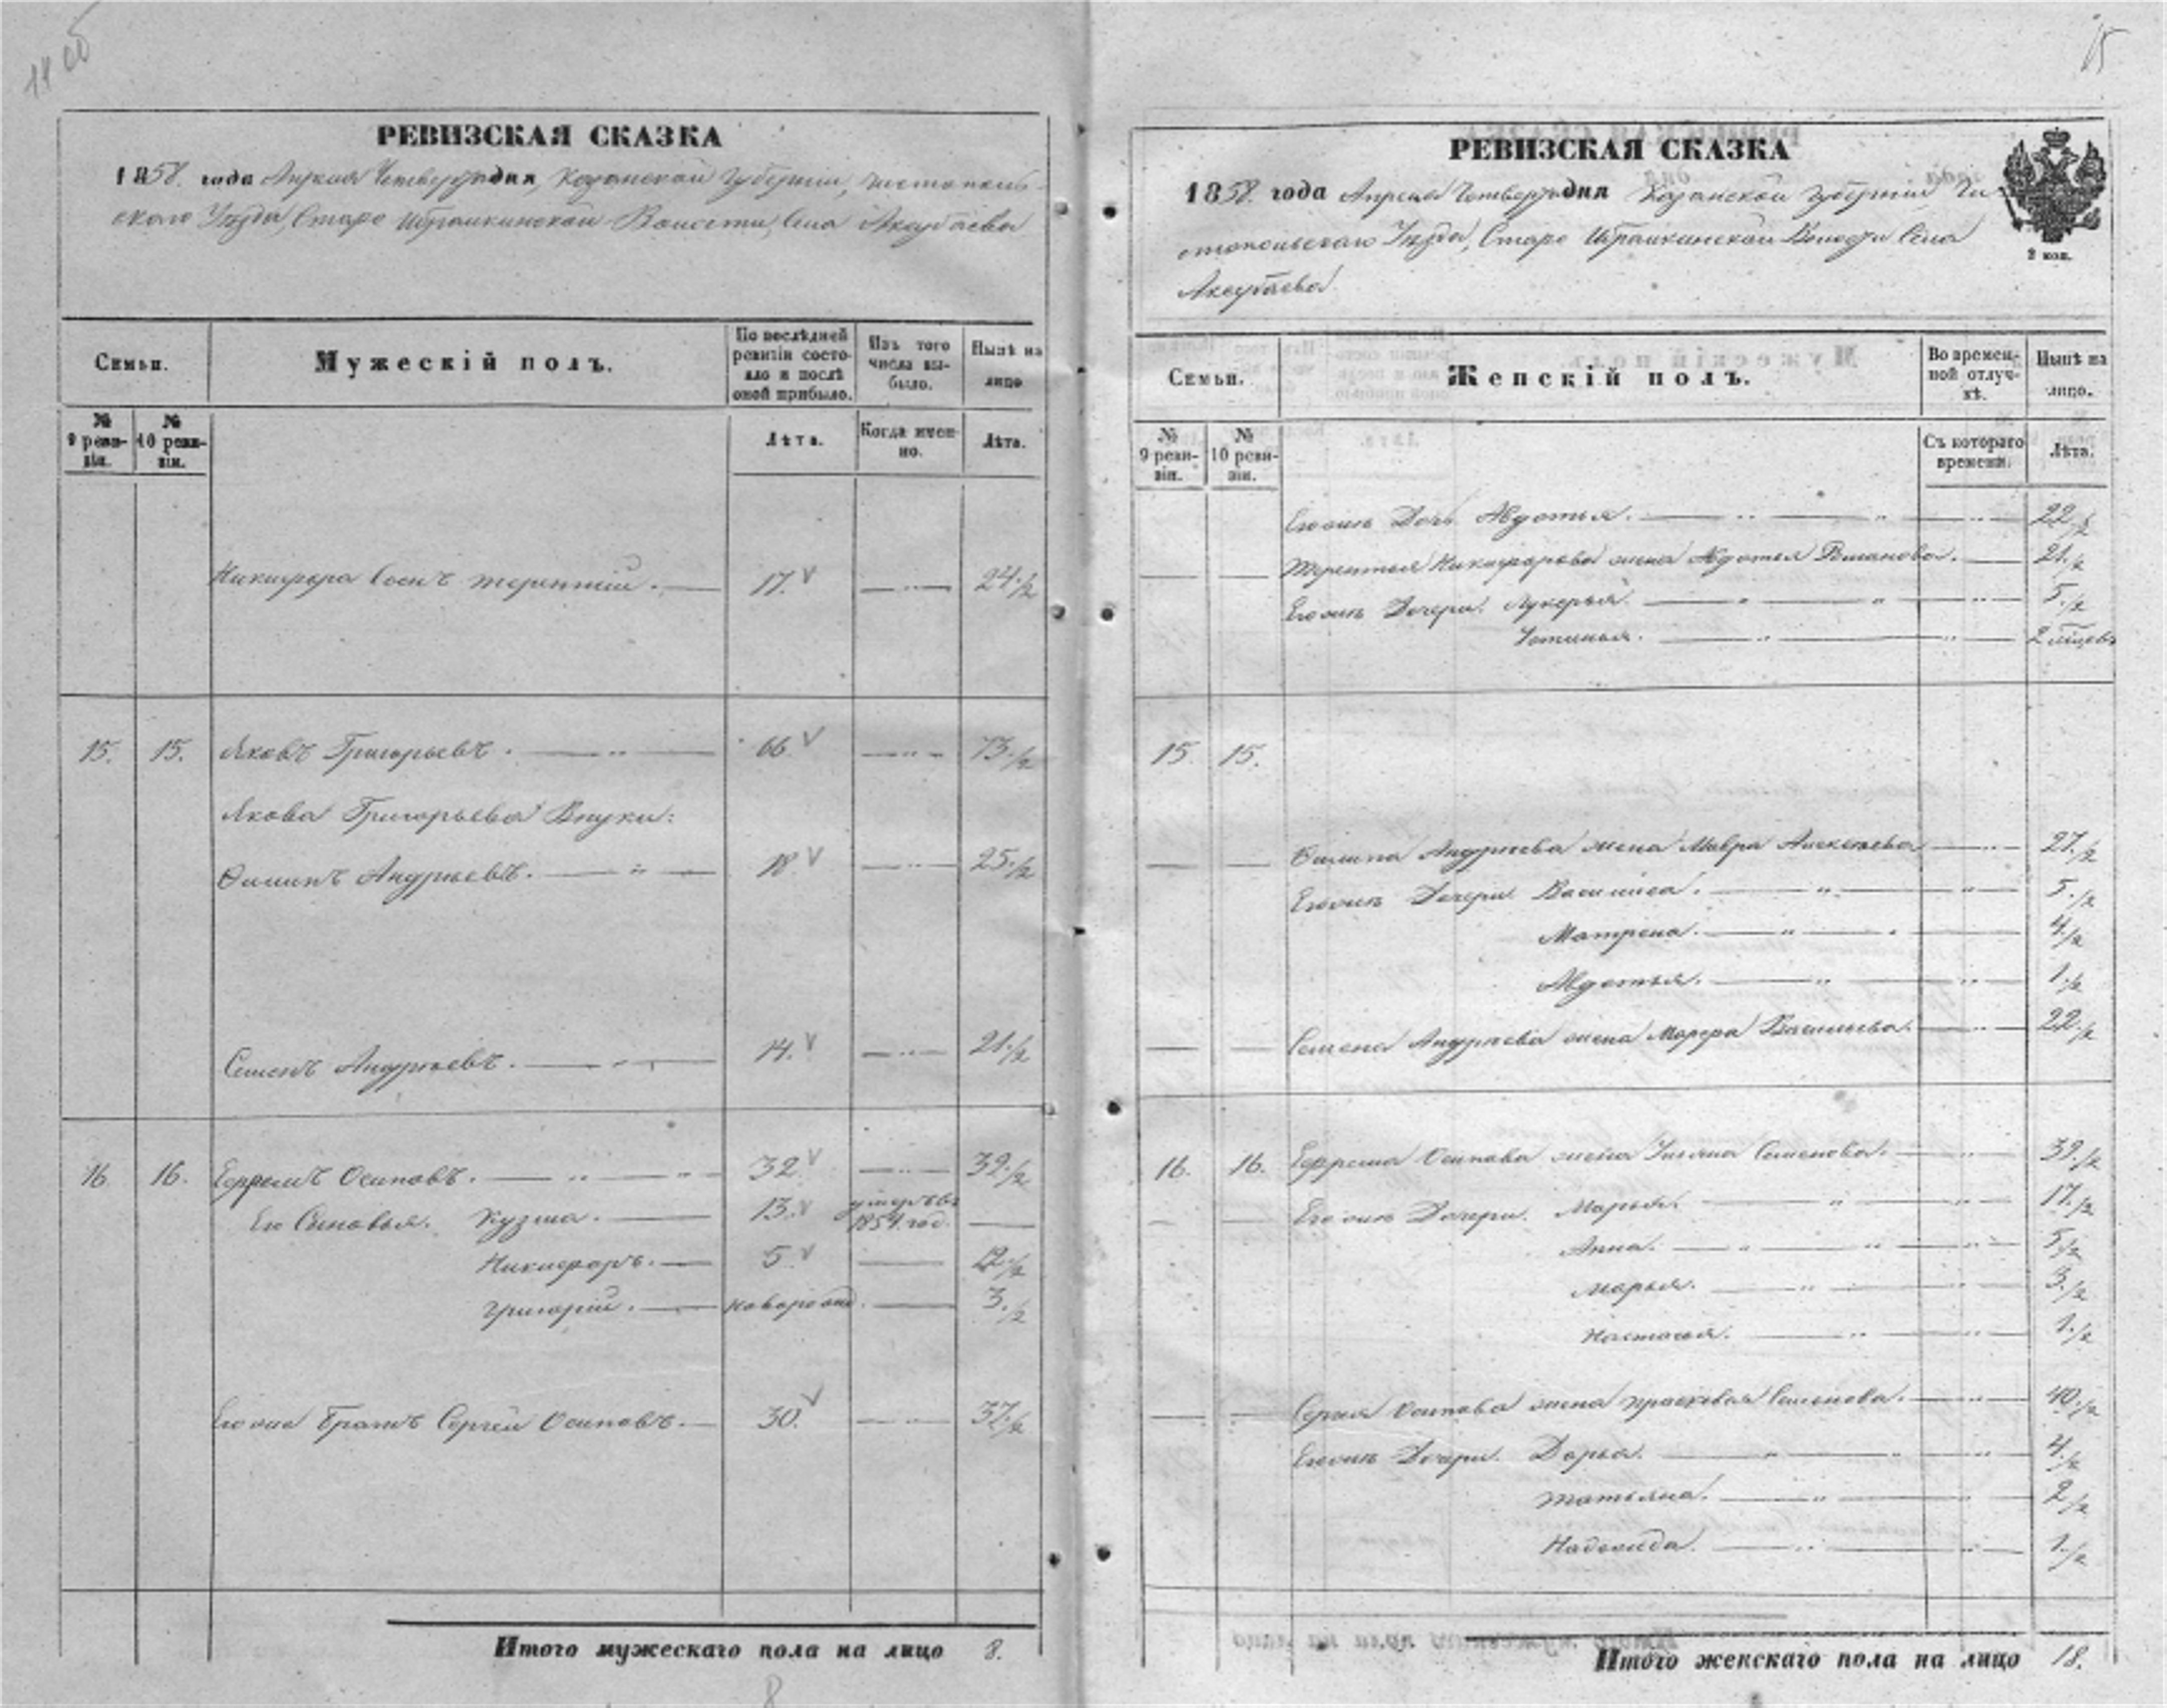 14 об
РЕВИЗСКАЯ СКАЗКА
1858. года Апреля Четвертаго дня, Казанской Губернiи, Чистополь-
скаго Уѣзда, Старо Ибрайкинской Волости, Села Аксубаева
Семьи.
Мужескiй полъ.
По послѣдней ревизiи состо-
яло и послѣ оной прибыло.
Изъ того числа вы-
было.
Нынѣ на лицо
№ 9 реви-
зiи.
№ 10 реви-
зiи.
Лѣта.
Когда имен-
но.
Лѣта.
Никифора Сынъ Терентiй. 17. 24.1/2
15. 15. Яковъ Григорьевъ. 66. 73.1/2
Якова Григорьева Внуки:
Филипъ Андреевъ. 18 25.1/2
Семенъ Андреевъ. 14. 21.1/2
16. 16. Ефремъ Осиповъ. 32. 39.1/2
Его Сыновья. Кузма. 13. умеръ въ 1854 год.
Никифоръ. 5. 12.1/2
Григорiй. новорожд. 3.1/2
Его же Братъ Сергей Осиповъ. 30. 37.1/2
Итого мужескаго пола на лицо 8.
8
15
РЕВИЗСКАЯ СКАЗКА
1858. года Апреля Четвертаго дня Казанской Губернiи Чи-
стопольскаго Уѣзда, Старо Ибрайкинской Волости Села
Аксубаева
2 коп.
Семьи.
Женскiй полъ.
Во времен-
ной отлуч-
кѣ.
Нынѣ на лицо.
№ 9 реви-
зiи.
№ 10 реви-
зiи.
Съ котораго времени.
Лѣта.
Дочь Авдотья. 22.1/2
Терентья Никифорова жена Авдотья 21.1/2
Дочери. Лукерья. 5.1/2
Устинья. 2 мѣсяцовъ
15. 15.
Филипа Андреева жена Мавра Алексѣева 27.1/2
Дочери Василиса. 5.1/2
Матрена. 4.1/2
Авдотья. 1.1/2
Семена Андреева жена Марфа Васильева. 22.1/2
16. 16. Ефрема Осипова жена Ульяна Семенова. 39.1/2
Дочери. Марья. 17.1/2
Анна. 5.1/2
Марья. 3.1/2
Настасья. 1.1/2
Сергея Осипова жена Прасковья Семенова. 40.1/2
Дочери. Дарья. 4.1/2
Татьяна. 2.1/2
Надежда. 1.1/2
Итого женскаго пола на лицо 18.